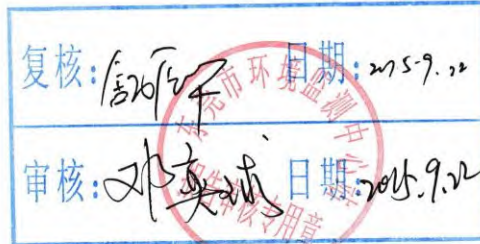 复核: 日期: 2015.9.22
审核: 邓英球 日期: 2015.9.22
东莞市环境监测中心站
报告审核专用章